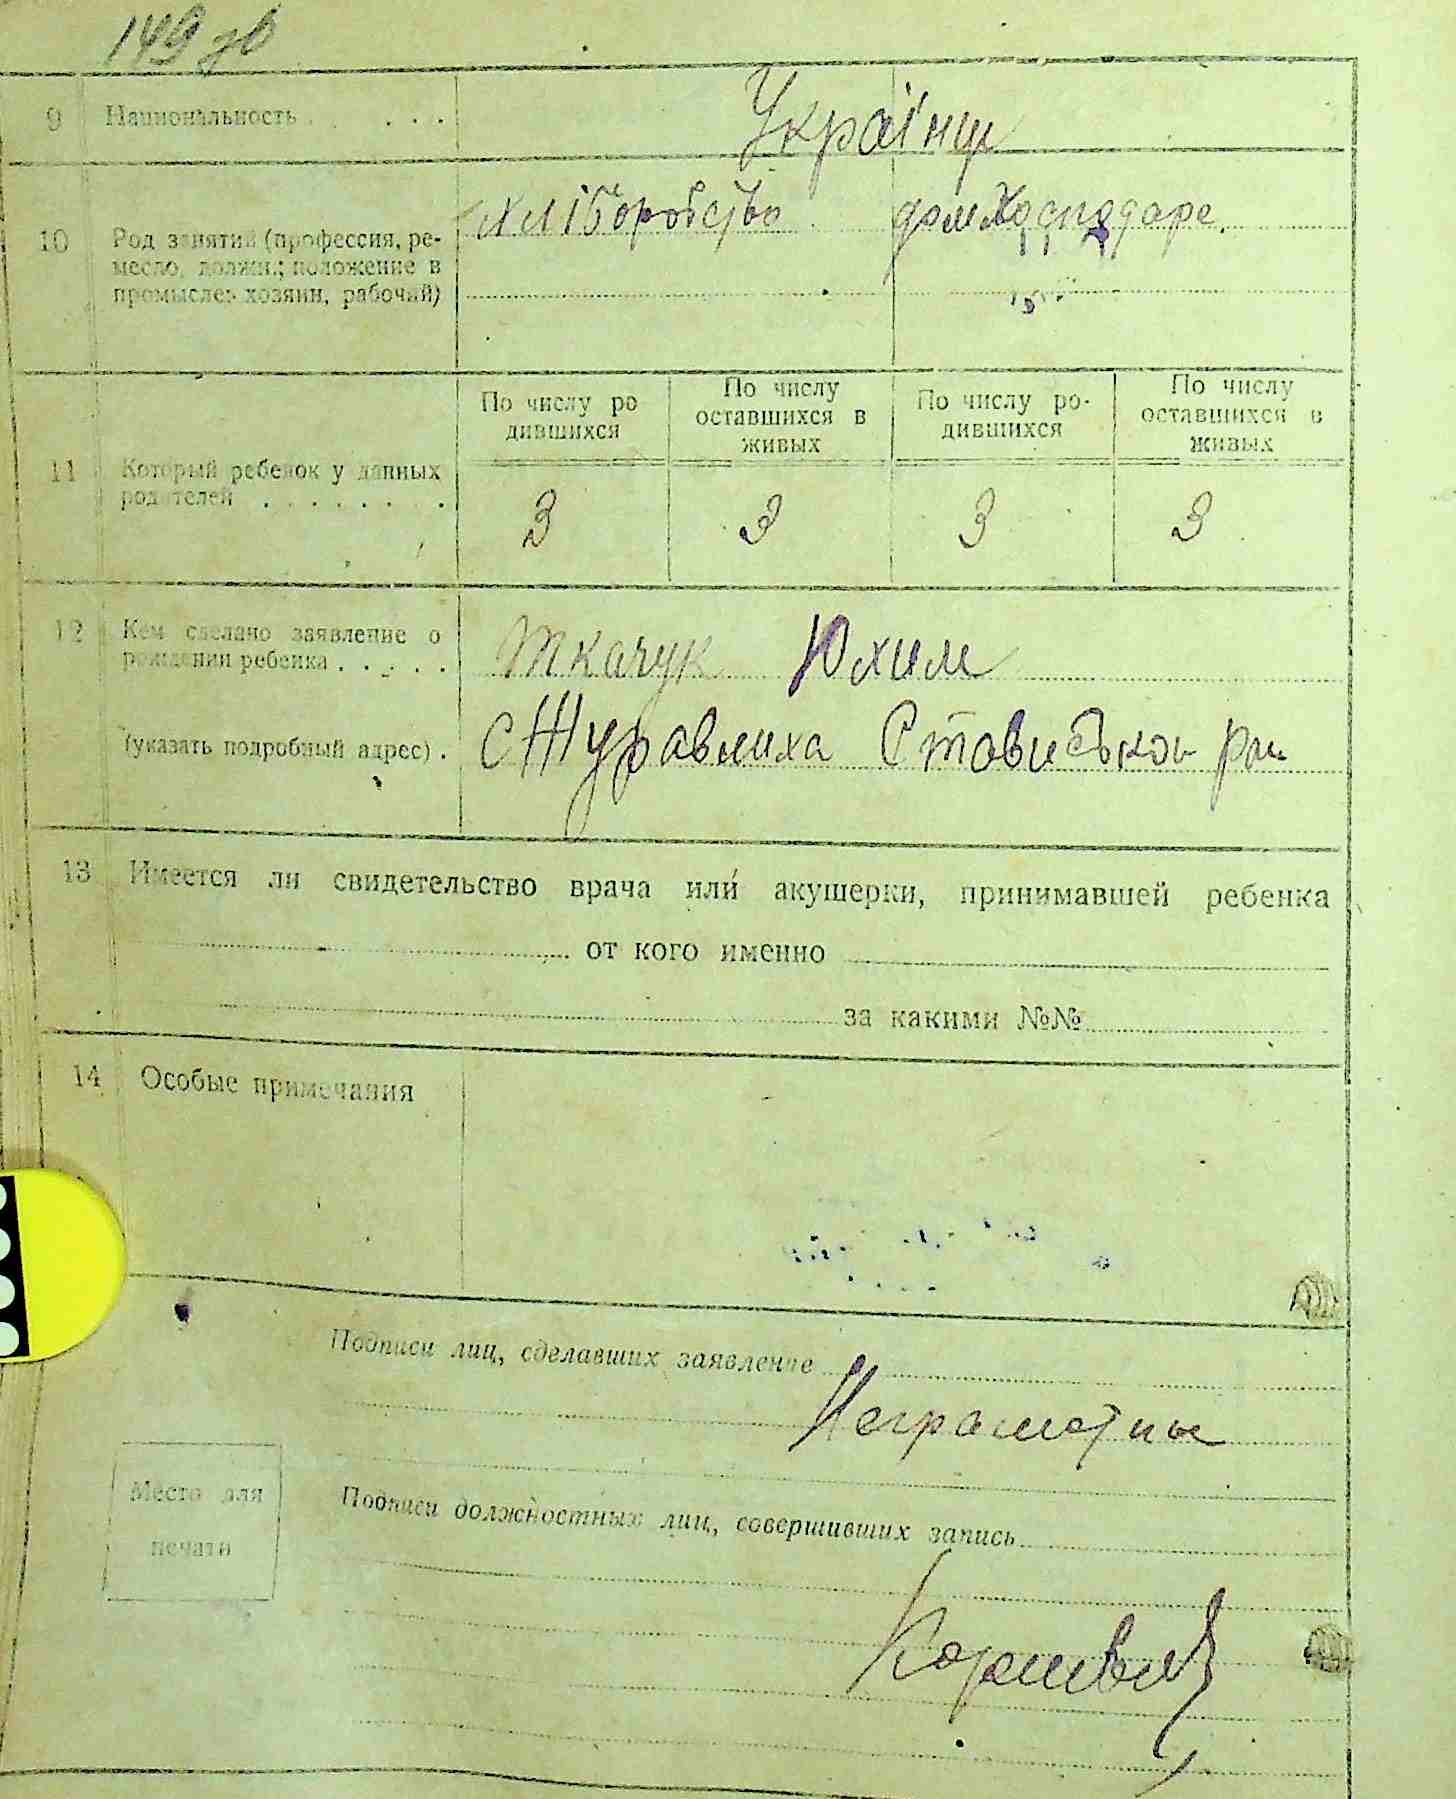 149 зв
9 Национальность . . . . Українці
10 Род занятий (профессия, ре-
месло, должн.; положение в
промысле: хозяин, рабочий)
Хліборобство домХосподаре.
11 Который ребенок у данных
родителей . . . . . . . .
По числу ро
дившихся
По числу
оставшихся в
живых
По числу ро-
дившихся
По числу
оставшихся в
живых
3 3 3 3
12 Кем сделано заявление о
рождении ребенка . . . . .
(указать подробный адрес) .
Ткачук Юхим
с Журавлиха Стависької рни
13 Имеется ли свидетельство врача или акушерки, принимавшей ребенка
от кого именно
за какими №№
14 Особые примечания
Подписи лиц, сделавших заявление
Неграмотны
Место для
печати
Подписи должностных лиц, совершивших запись